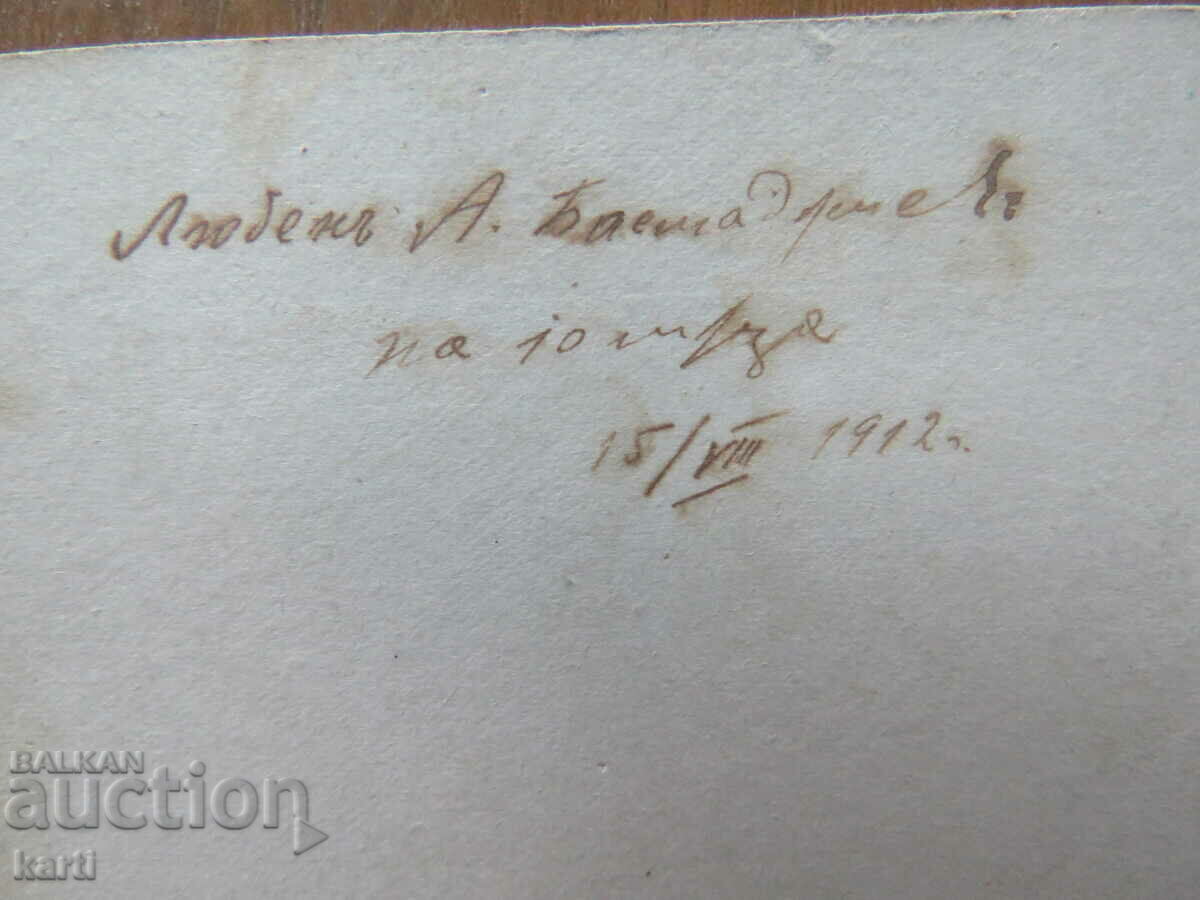 Любенъ А.
на 10 м‑ца
15/VIII 1912 г.
BALKAN
auction
karti